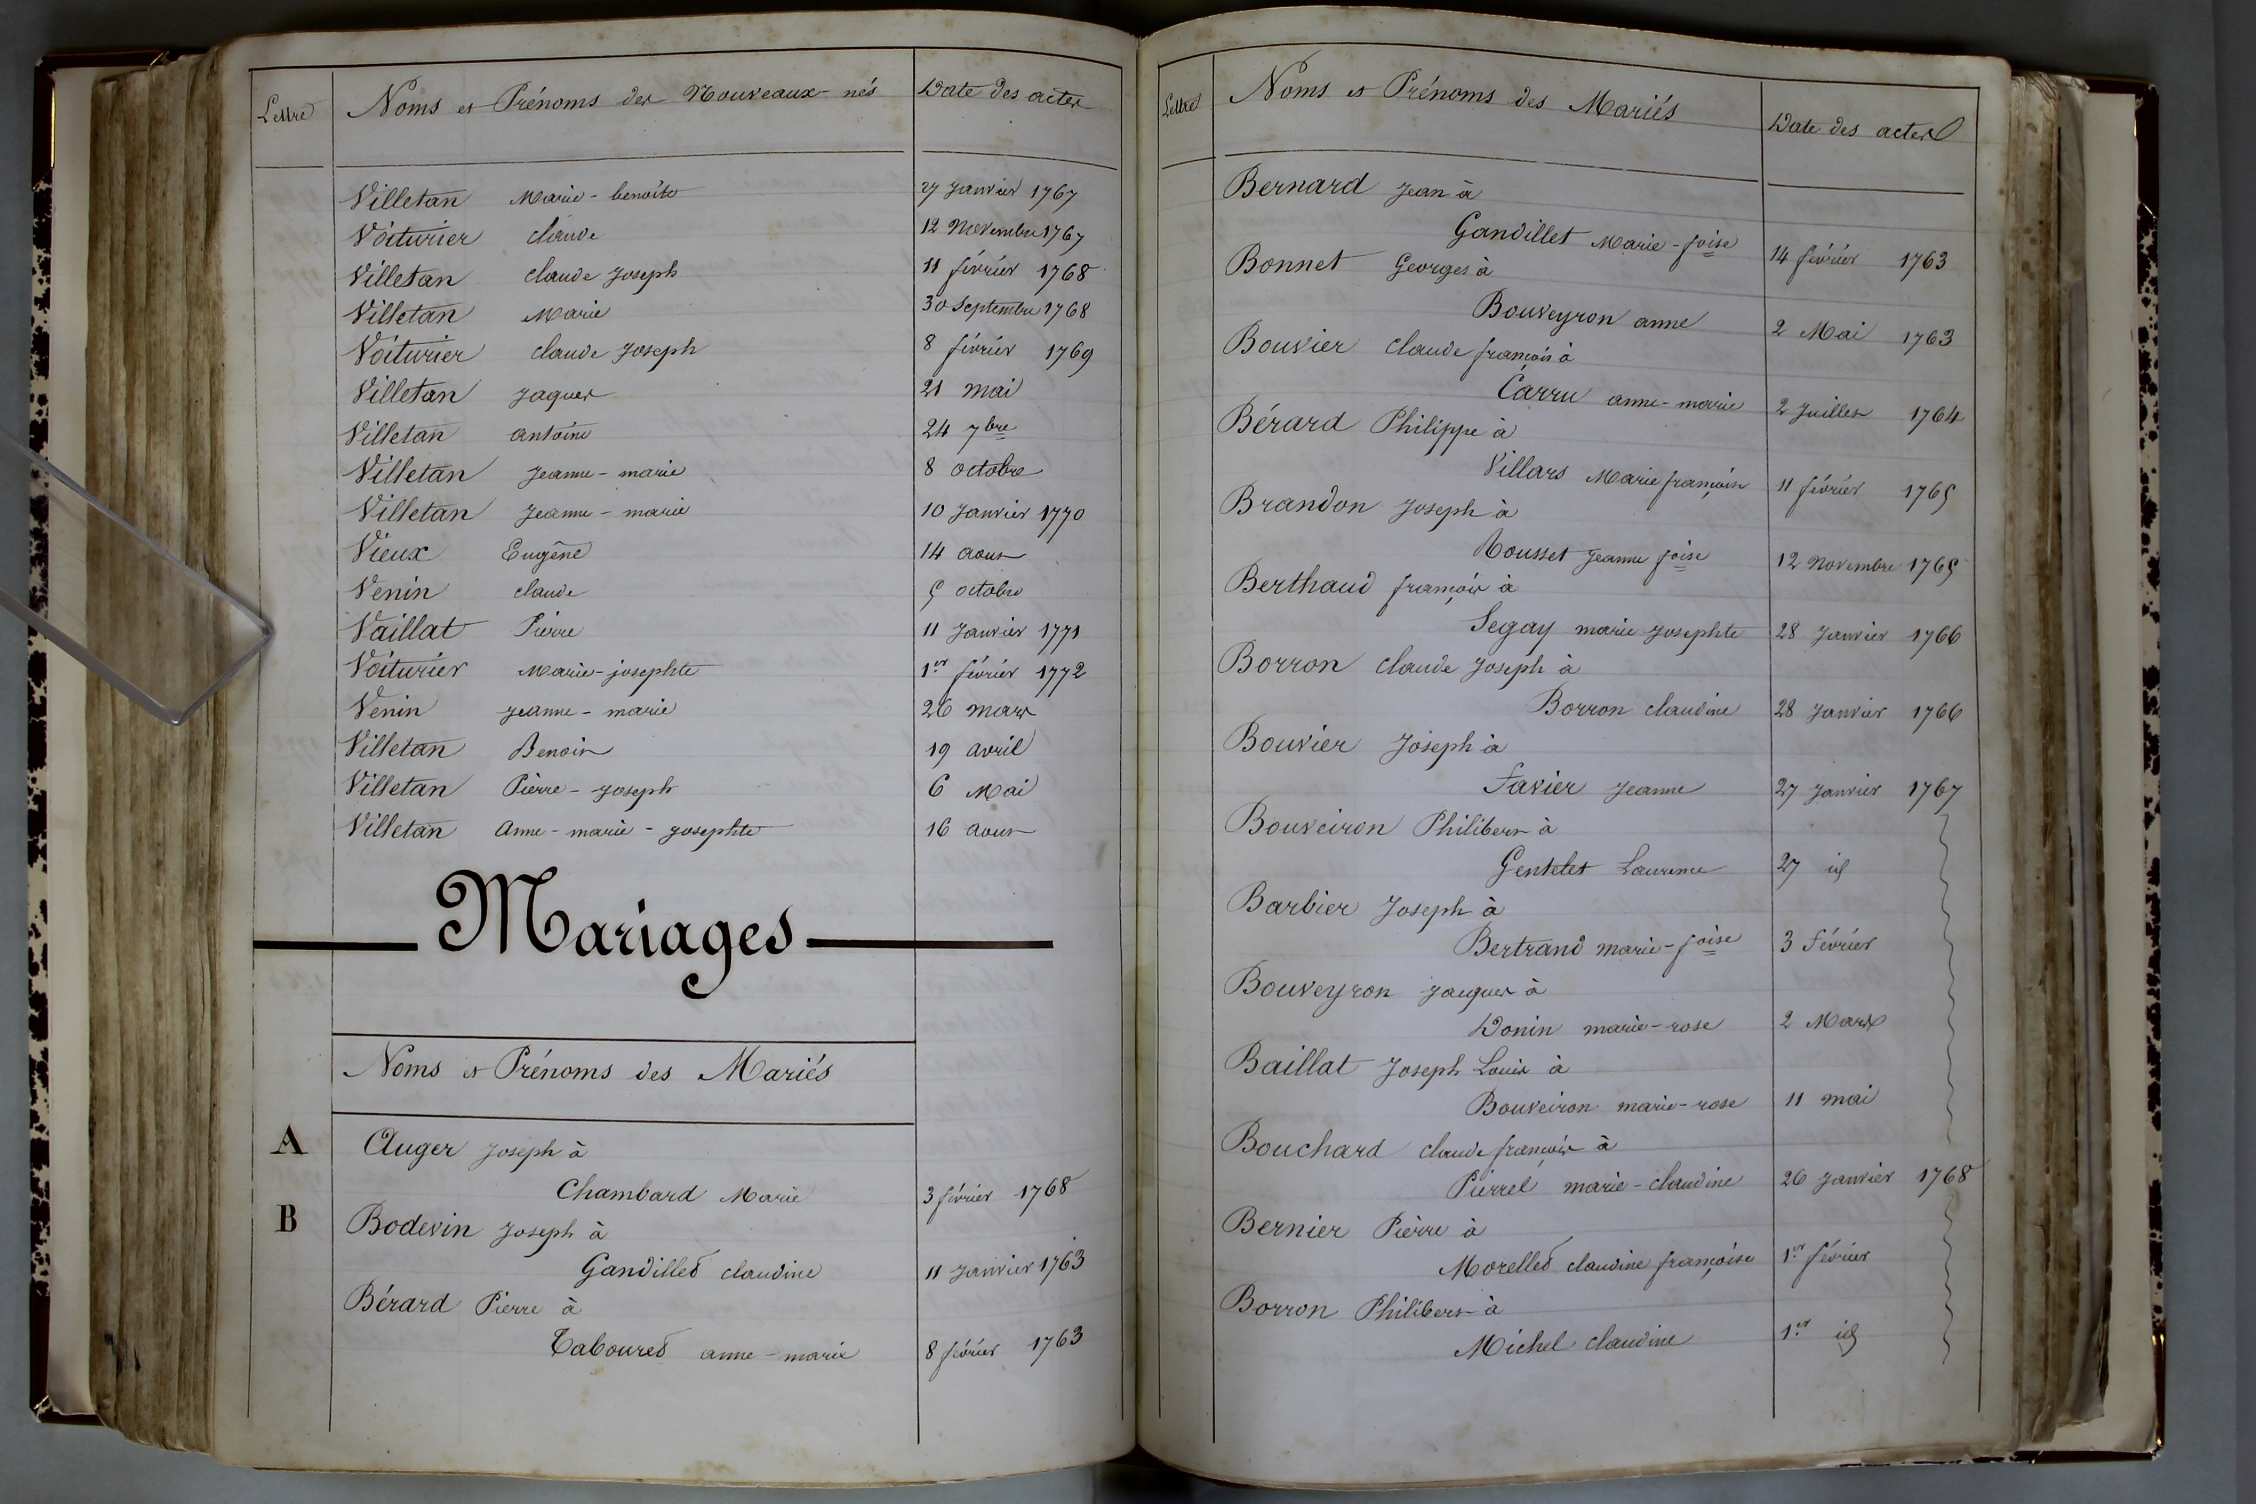 Lettre Noms et Prénoms des Nouveaux-nés Date des actes
Villetan Marie-benoîte 27 Janvier 1767
Voiturier claude 12 Novembre 1767
Villetan claude Joseph 11 février 1768
Villetan Marie 30 Septembre 1768
Voiturier claude Joseph 8 février 1769
Villetan Jaques 21 mai
Villetan antoine 24 7bre
Villetan Jeanne-marie 8 octobre
Villetan Jeanne-marie 10 Janvier 1770
Vieux Eugène 14 aout
Venin claude 5 octobre
Vaillat Pierre 11 Janvier 1771
Voiturier Marie-josephte 1er février 1772
Venin Jeanne-marie 26 mars
Villetan Benoit 19 avril
Villetan Pierre-Joseph 6 Mai
Villetan Anne-marie-Josephte 16 aout
Mariages
Noms et Prénoms des Mariés
A Auger Joseph à
Chambard Marie 3 février 1768
B Bodevin Joseph à
Gandillet claudine 11 Janvier 1763
Bérard Pierre à
Tabouret anne-marie 8 février 1763
Lettre Noms et Prénoms des Mariés Date des actes
Bernard Jean à
Gandillet Marie-foise 14 février 1763
Bonnet Georges à
Bouveyron anne 2 Mai 1763
Bouvier claude françois à
Carru anne-marie 2 Juillet 1764
Bérard Philippe à
Villars Marie françoise 11 février 1765
Brandon Joseph à
Rousset Jeanne foise 12 Novembre 1765
Berthaud françois à
Segay marie Josephte 28 Janvier 1766
Borron claude Joseph à
Borron claudine 28 Janvier 1766
Bouvier Joseph à
Favier Jeanne 27 Janvier 1767
Bouveiron Philibert à
Gentelet Laurence 27 id
Barbier Joseph à
Bertrand marie-foise 3 Février
Bouveyron Jacques à
Donin marie-rose 2 Mars
Baillat Joseph Louis à
Bouveiron marie-rose 11 mai
Bouchard claude françois à
Pierrel marie-claudine 26 Janvier 1768
Bernier Pierre à
Morellet claudine françoise 1er février
Borron Philibert à
Michel claudine 1er id